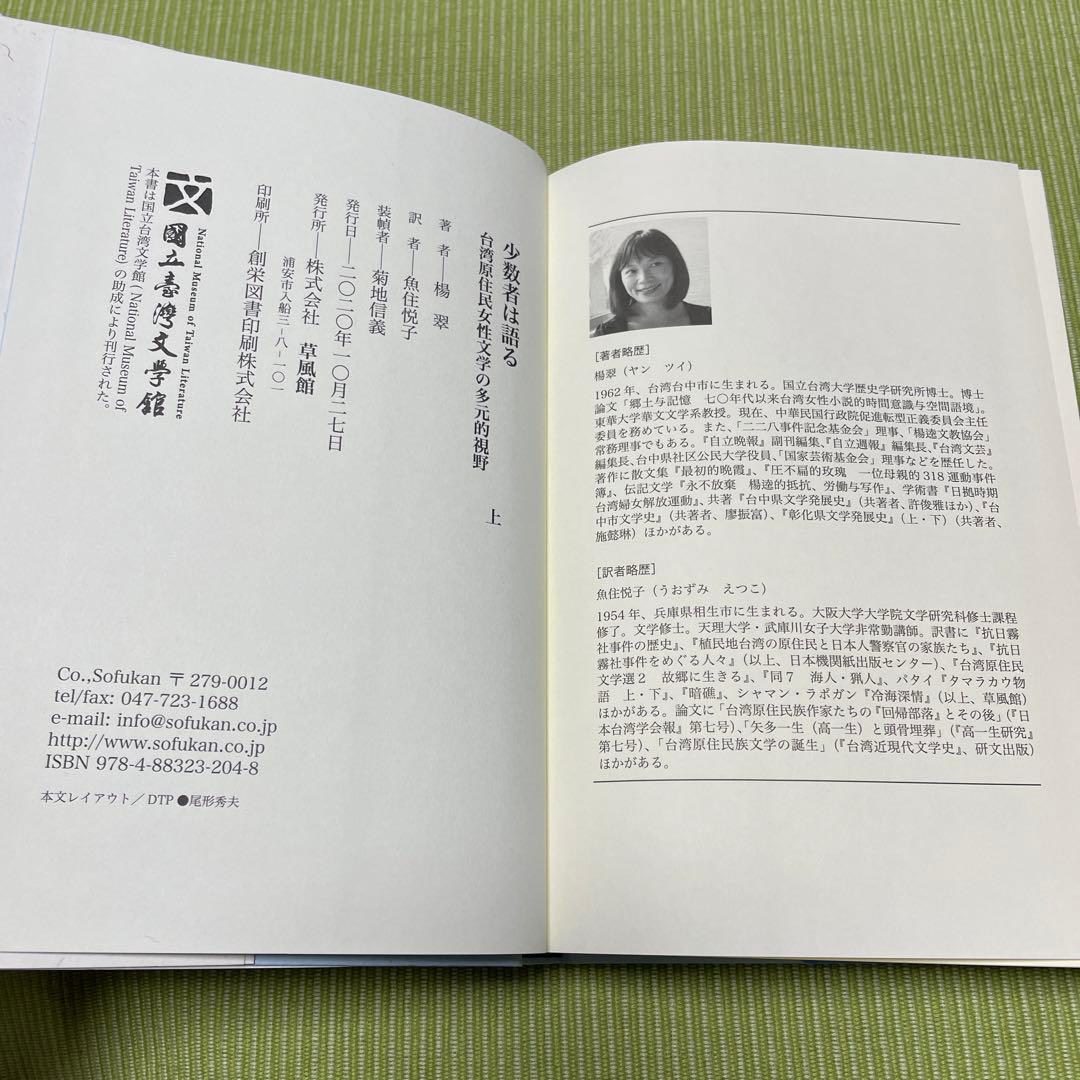 少数者は語る
台湾原住民女性文学の多元的視野 上
著 者―楊 翠
訳 者―魚住悦子
装幀者―菊地信義
発行日―二〇二〇年一〇月二七日
発行所―株式会社 草風館
浦安市入船三-八-一〇一
印刷所―創栄図書印刷株式会社
National Museum of Taiwan Literature
國立臺灣文學館
本書は国立台湾文学館(National Museum of
Taiwan Literature)の助成により刊行された。
Co.,Sofukan 〒279-0012
tel/fax: 047-723-1688
e-mail: info@sofukan.co.jp
http://www.sofukan.co.jp
ISBN 978-4-88323-204-8
本文レイアウト/DTP●尾形秀夫
[著者略歴]
楊翠(ヤン ツイ)
1962年、台湾台中市に生まれる。国立台湾大学歴史学研究所博士。博士
論文「郷土与記憶 七〇年代以来台湾女性小説的時間意識与空間語境」。
東華大学華文文学系教授。現在、中華民国行政院促進転型正義委員会主任
委員を務めている。また、「二二八事件記念基金会」理事、「楊逵文教協会」
常務理事でもある。『自立晩報』副刊編集、『自立週報』編集長、『台湾文芸』
編集長、台中県社区公民大学役員、「国家芸術基金会」理事などを歴任した。
著作に散文集『最初的晩霞』、『圧不扁的玫瑰 一位母親的318運動事件
簿』、伝記文学『永不放棄 楊逵的抵抗、労働与写作』、学術書『日拠時期
台湾婦女解放運動』、共著『台中県文学発展史』(共著者、許俊雅ほか)、『台
中市文学史』(共著者、廖振富)、『彰化県文学発展史』(上・下)(共著者、
施懿琳)ほかがある。
[訳者略歴]
魚住悦子(うおずみ えつこ)
1954年、兵庫県相生市に生まれる。大阪大学大学院文学研究科修士課程
修了。文学修士。天理大学・武庫川女子大学非常勤講師。訳書に『抗日霧
社事件の歴史』、『植民地台湾の原住民と日本人警察官の家族たち』、『抗日
霧社事件をめぐる人々』(以上、日本機関紙出版センター)、『台湾原住民
文学選2 故郷に生きる』、『同7 海人・猟人』、パタイ『タマラカウ物
語 上・下』、『暗礁』、シャマン・ラポガン『冷海深情』(以上、草風館)
ほかがある。論文に「台湾原住民族作家たちの『回帰部落』とその後」(『日
本台湾学会報』第七号)、「矢多一生(高一生)と頭骨埋葬」(『高一生研究』
第七号)、「台湾原住民族文学の誕生」(『台湾近現代文学史』、研文出版)
ほかがある。